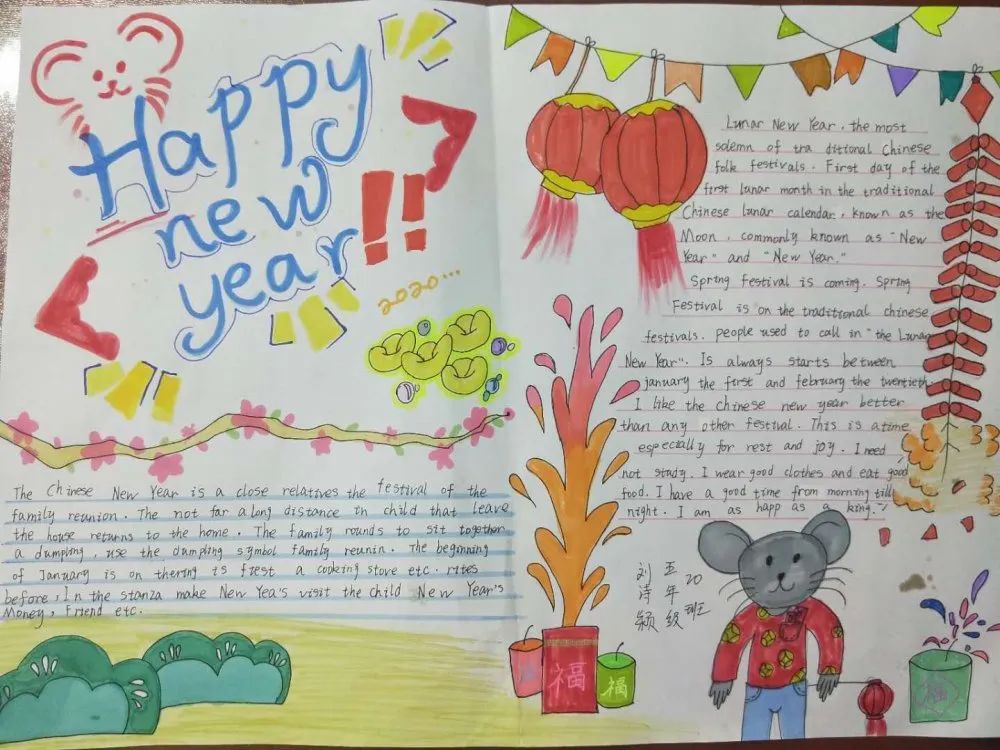 Happy
new
year!!
2020...
The Chinese New Year is a close relatives the festival of the
family reunion. The not far along distance tn child that leave
the house returns to the home. The family rounds to sit together
a dumpling, use the dumpling symbol family reunin. The beginning
of January is on thering is fiest a cooking stove etc. rites
before, In the stanza make New Yea's visit the child New Year's
Money, Friend etc.
Lunar New Year, the most
solemn of tra ditional Chinese
folk festivals. First day of the
first lunar month in the traditional
Chinese lunar calendar, known as the
Moon, commonly known as "New
Year" and "New Year."
Spring Festival is coming. Spring
Festival is on the traditional chinese
festivals. people used to call in "the Lunar
New Year". Is always starts between
january the first and february the twentieth.
I like the Chinese new year better
than any other festival. This is a time
especially for rest and joy. I need
not study. I wear good clothes and eat good
food. I have a good time from morning till
night. I am as happ as a king.
五年级20班
刘诗颖
福
福
福